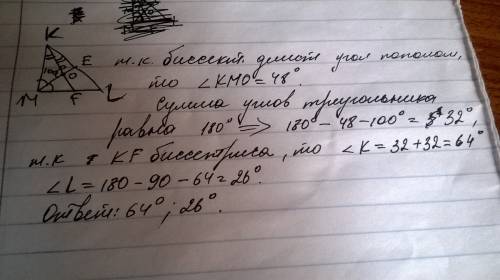 K
E
O
M
F
L
т.к. биссект. делит угол пополам,
то ∠KMO = 48°.
Сумма углов треугольника
равна 180° ⟹ 180° - 48 - 100° = 32°,
т.к KF биссектриса, то ∠K = 32 + 32 = 64°
∠L = 180 - 90 - 64 = 26°.
Ответ: 64°; 26°.